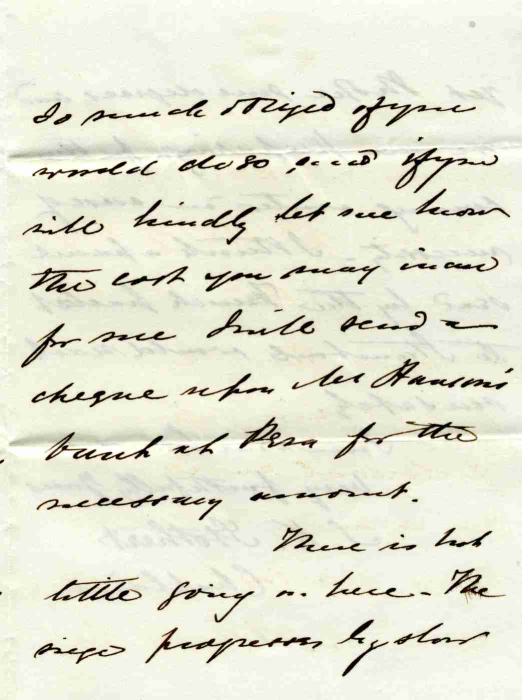 so much obliged if you
would do so, and if you
will kindly let me know
the cost you may incur
for me I will send a
cheque upon Mr Hanson's
bank at Pera for the
necessary amount.
There is but
little going on here - The
siege progresses by slow